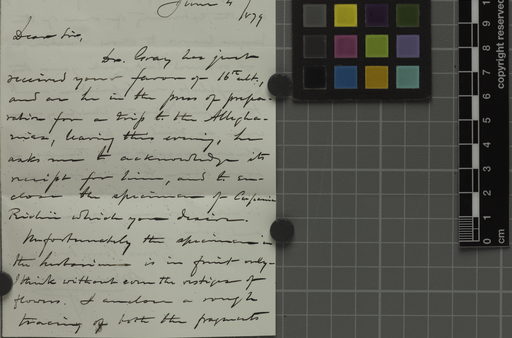 June 4 1879
Dear Sir,
Dr. Gray has just
received your favor of 16th ult,
and as he is in the press of prepa-
ration for a trip to the Allegha-
nies, leaving this evening, he
asks me to acknowledge its
receipt for him, and to en-
close the specimen of
which you desire.
Unfortunately the specimen in
the herbarium is in fruit only-
I think without even the vestiges of
flowers. I enclose a rough
tracing of both the fragments
copyright reserved
cm
0
1
2
3
4
5
6
7
8
9